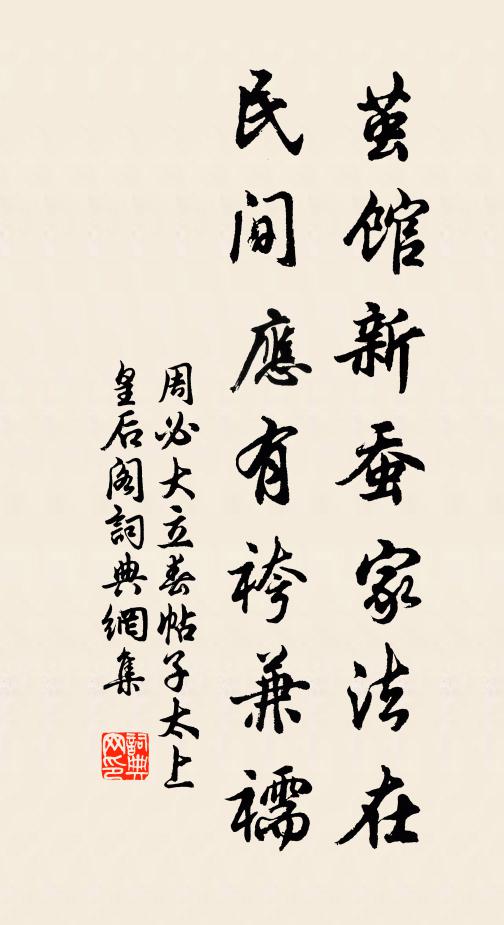 茧馆新蚕家法在
民间應有袴兼襦
周必大立春帖子太上
皇后阁詞典網集
詞典网印